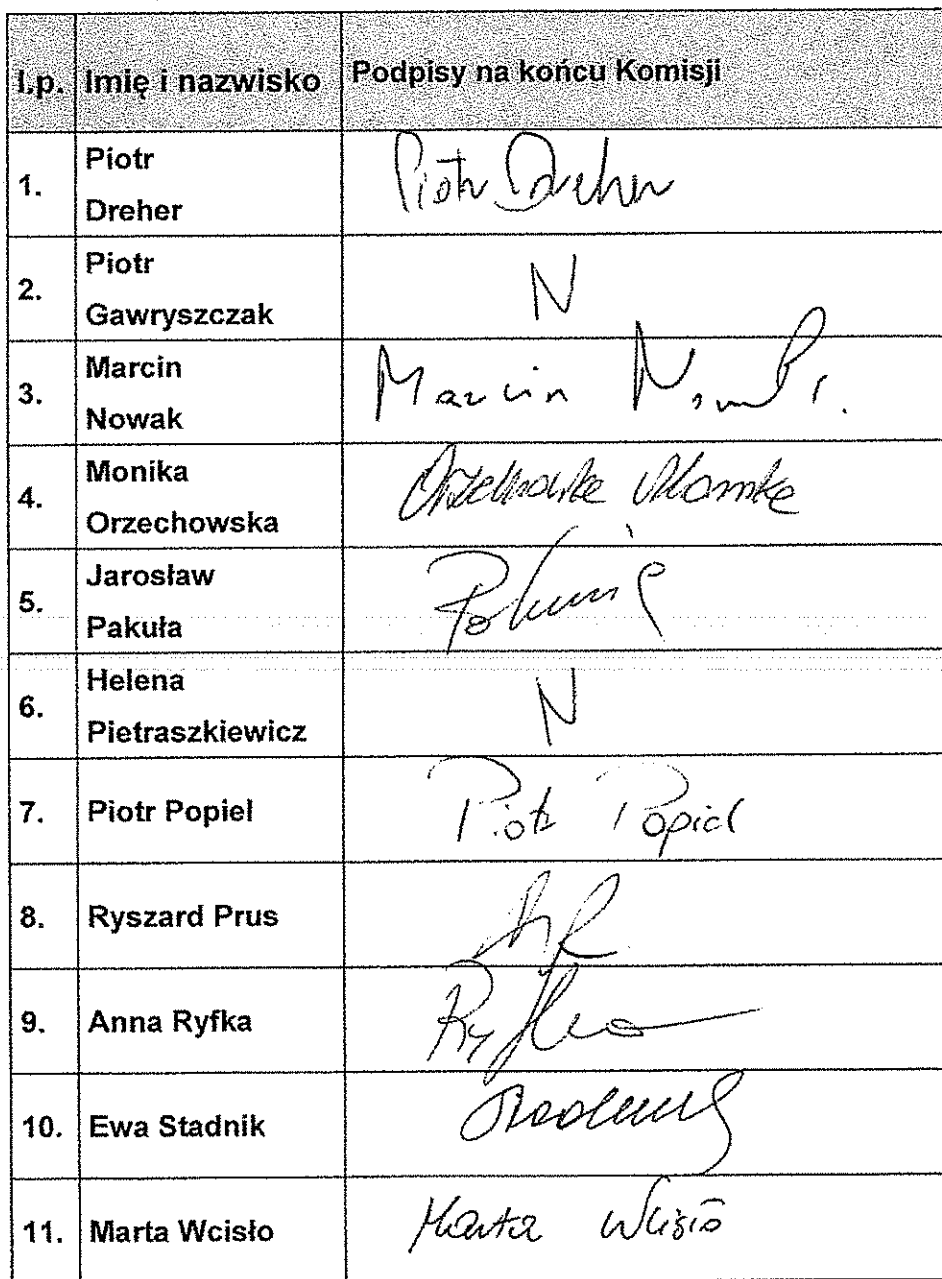 l.p. Imię i nazwisko Podpisy na końcu Komisji
1. Piotr Dreher Piotr Dreher
2. Piotr Gawryszczak N
3. Marcin Nowak Marcin
4. Monika Orzechowska
5. Jarosław Pakuła
6. Helena Pietraszkiewicz N
7. Piotr Popiel Piotr Popiel
8. Ryszard Prus
9. Anna Ryfka
10. Ewa Stadnik
11. Marta Wcisło Marta Wcisło